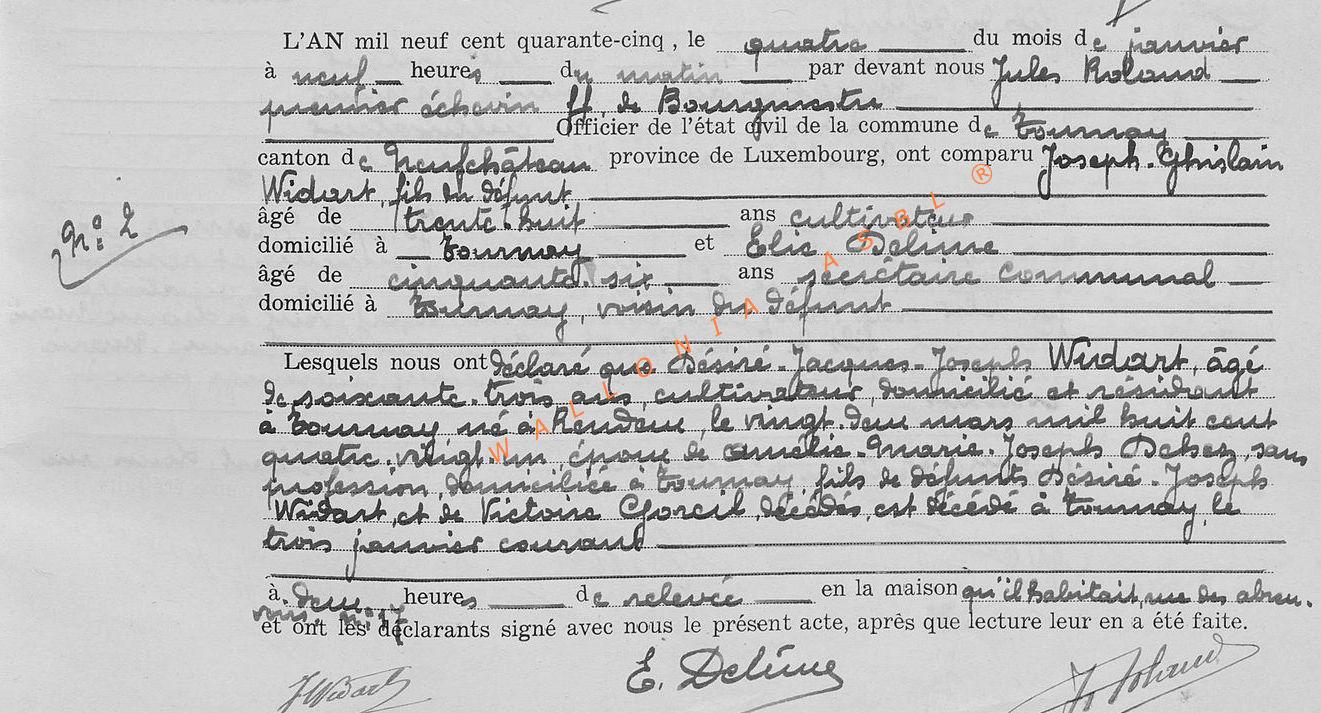 L'AN mil neuf cent quarante-cinq, le quatre du mois de janvier
à neuf heures du matin par devant nous Jules Roland
premier échevin ff de Bourgmestre
Officier de l'état civil de la commune de Tournay
canton de Neufchâteau province de Luxembourg, ont comparu Joseph-Ghislain
Widart, fils du défunt
âgé de trente-huit ans cultivateur
nº 2
domicilié à Tournay et Elie Delime
âgé de cinquante-six ans secrétaire communal
domicilié à Tournay, voisin du défunt
Lesquels nous ont déclaré que Désiré-Jacques-Joseph Widart, âgé
de soixante-trois ans, cultivateur, domicilié et résidant
à Tournay, né à Rendeux, le vingt-deux mars mil huit cent
quatre-vingt-un, époux de Amélie-Marie-Joseph Dehez, sans
profession, domiciliée à Tournay, fils de défunts Désiré-Joseph
Widart, et de Victoire Gforcil, décédés, est décédé à Tournay, le
trois janvier courant
à deux heures de relevée en la maison qu'il habitait, rue des abreu-
voirs, nº 17
et ont les déclarants signé avec nous le présent acte, après que lecture leur en a été faite.
JWidart E. Delime J. Roland
WALLONIA ASBL ®